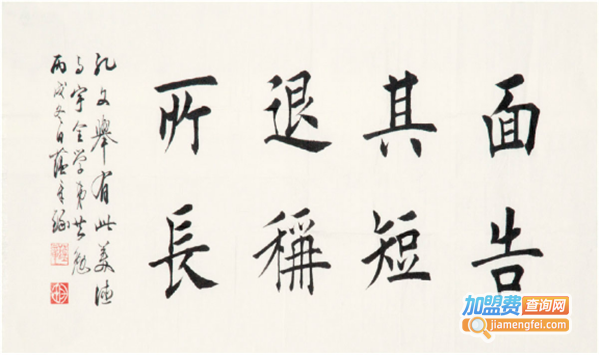 面告
其短
退稱
所長
孔文舉有此美德
與宇全學弟共勉
丙戌冬日蘊章
加盟费查询网
jiamengfei.com